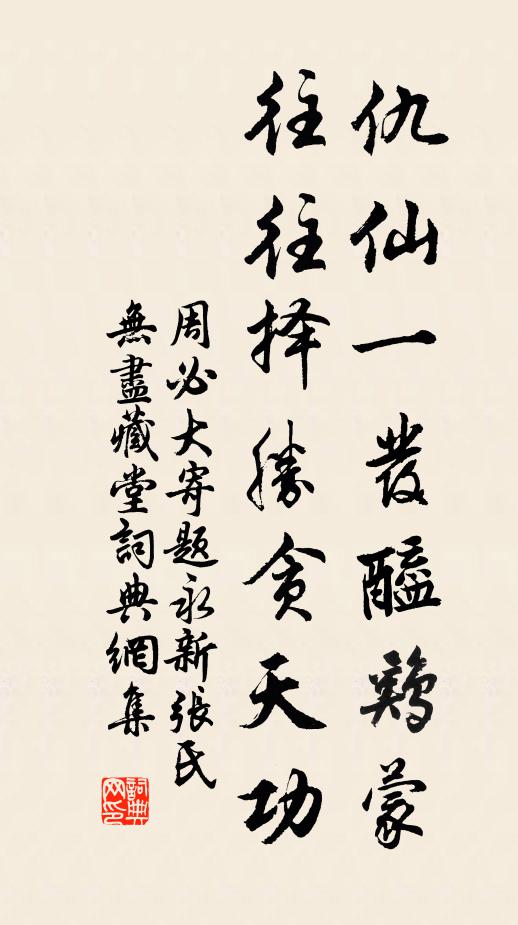 仇仙一發醯鷄蒙
往往择勝贪天功
周必大寄題永新張氏
無盡藏堂詞典網集
詞典网印